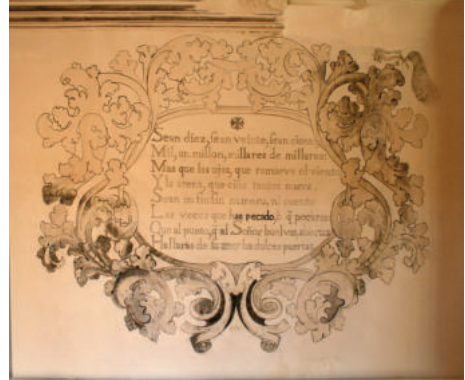 Sean diez, sean veinte, sean ciento
Mil, un millon, millares de millares
Mas que las ojas, que remueve el viento
Y la arena, que
Sean sin
Las vezes que has pecado, ò q̃
Que al punto, q̃ al Señor buelvas,
Hallaràs de su amor las dulces puertas